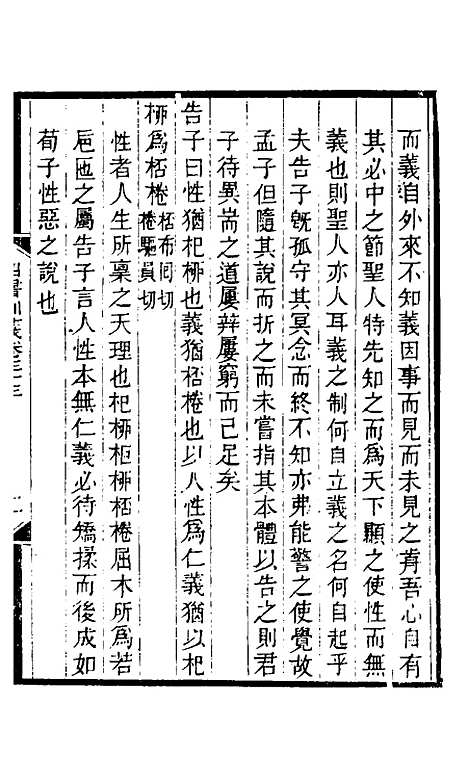 而義自外來不知義因事而見而未見之前吾心自有
其必中之節聖人特先知之而為天下顯之使性而無
義也則聖人亦人耳義之制何自立義之名何自起乎
夫告子旣孤守其冥念而終不知亦弗能警之使覺故
孟子但隨其說而折之而未嘗指其本體以告之則君
子待異耑之道屢辨屢窮而已足矣
告子曰性猶杞柳也義猶桮棬也以人性為仁義猶以杞
柳為桮棬桮布回切棬驅員切
性者人生所稟之天理也杞柳柜柳桮棬屈木所為若
巵匜之屬告子言人性本無仁義必待矯揉而後成如
荀子性惡之說也
四書訓義卷三十三